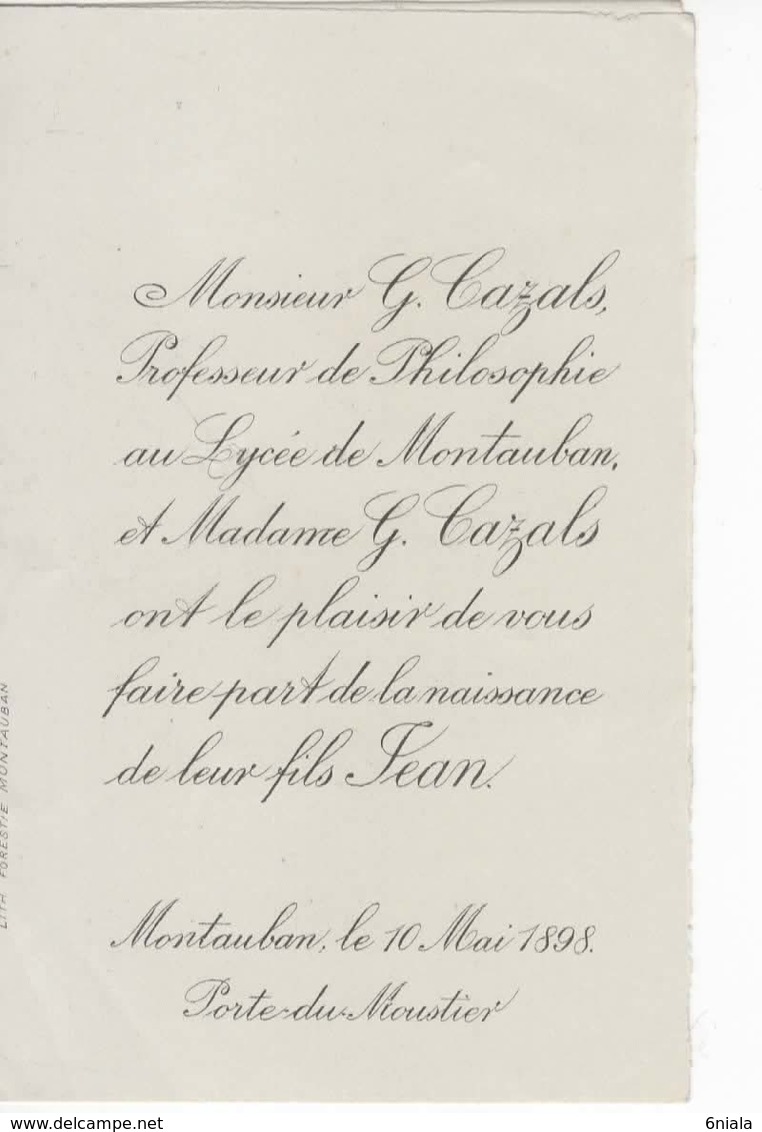 Monsieur G. Cazals,
Professeur de Philosophie
au Lycée de Montauban,
et Madame G. Cazals
ont le plaisir de vous
faire part de la naissance
de leur fils Jean.
Montauban, le 10 Mai 1898.
Porte-du-Moustier
LITH FORESTIÉ MONTAUBAN
www.delcampe.net
6niala